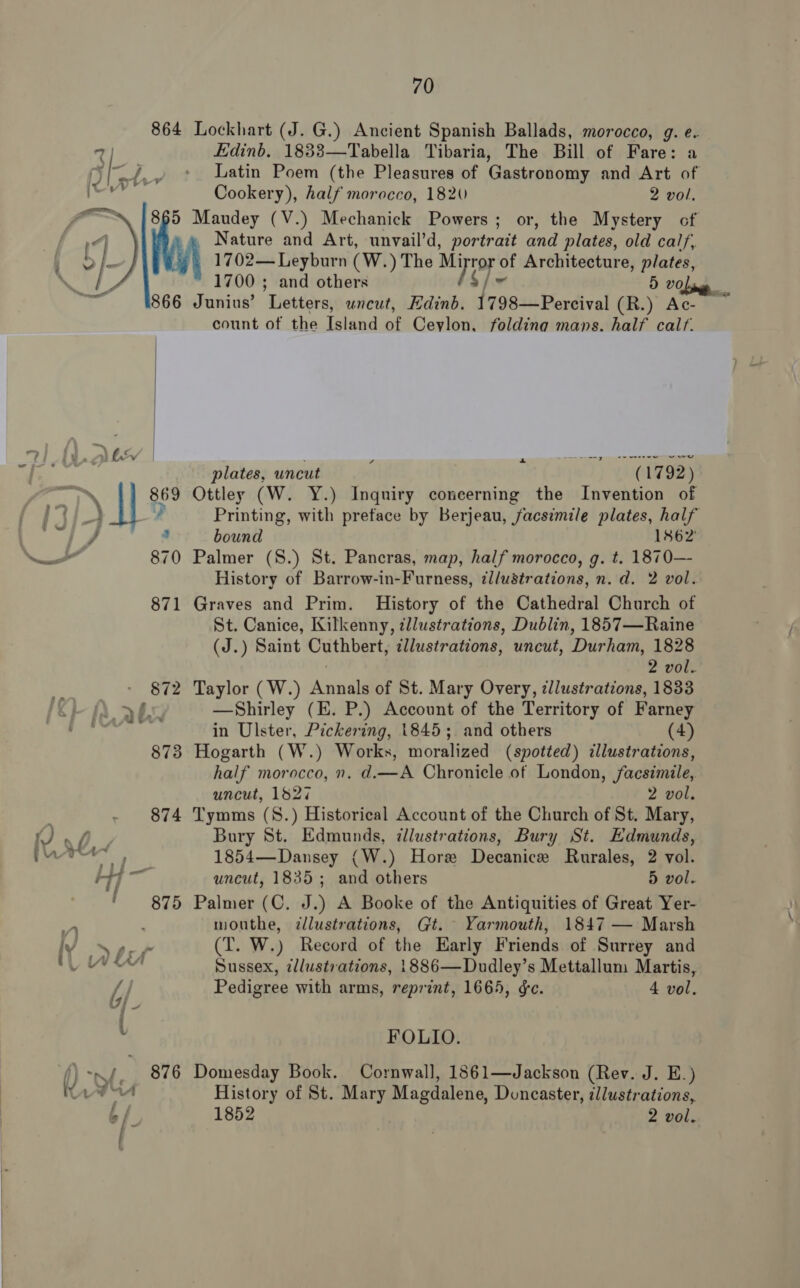 70
864 Lockhart (J. G.) Ancient Spanish Ballads, morocco, g. e.
Edinb. 1833—Tabella Tibaria, The Bill of Fare: a
Latin Poem (the Pleasures of Gastronomy and Art of
Cookery), half morocco, 1820 2 vol.
865 Maudey (V.) Mechanick Powers; or, the Mystery of
Nature and Art, unvail'd, portrait and plates, old calf,
1702—Leyburn (W.) The Mirror of Architecture, plates,
1700; and others 5 vol.
866 Junius' Letters, uncut, Edinb. 1798—Percival (R.) Ac-
count of the Island of Ceylon, folding maps, half calf.
plates, uncut (1792)
869 Ottley (W. Y.) Inquiry concerning the Invention of
Printing, with preface by Berjeau, facsimile plates, half
bound 1862
870 Palmer (S.) St. Pancras, map, half morocco, g. t. 1870—
History of Barrow-in-Furness, illustrations, n. d. 2 vol.
871 Graves and Prim. History of the Cathedral Church of
St. Canice, Kilkenny, illustrations, Dublin, 1857—Raine
(J.) Saint Cuthbert, illustrations, uncut, Durham, 1828
2 vol.
872 Taylor (W.) Annals of St. Mary Overy, illustrations, 1833
—Shirley (E. P.) Account of the Territory of Farney
in Ulster, Pickering, 1845; and others (4)
873 Hogarth (W.) Works, moralized (spotted) illustrations,
half morocco, n. d.—A Chronicle of London, facsimile,
uncut, 1827 2 vol.
874 Tymms (S.) Historical Account of the Church of St. Mary,
Bury St. Edmunds, illustrations, Bury St. Edmunds,
1854—Dansey (W.) Horæ Decanicæ Rurales, 2 vol.
uncut, 1835; and others 5 vol.
875 Palmer (C. J.) A Booke of the Antiquities of Great Yer-
mouthe, illustrations, Gt. Yarmouth, 1847 — Marsh
(T. W.) Record of the Early Friends of Surrey and
Sussex, illustrations, 1886—Dudley's Mettallum Martis,
Pedigree with arms, reprint, 1665, &c. 4 vol.
FOLIO.
876 Domesday Book. Cornwall, 1861—Jackson (Rev. J. E.)
History of St. Mary Magdalene, Doncaster, illustrations,
1852 2 vol.